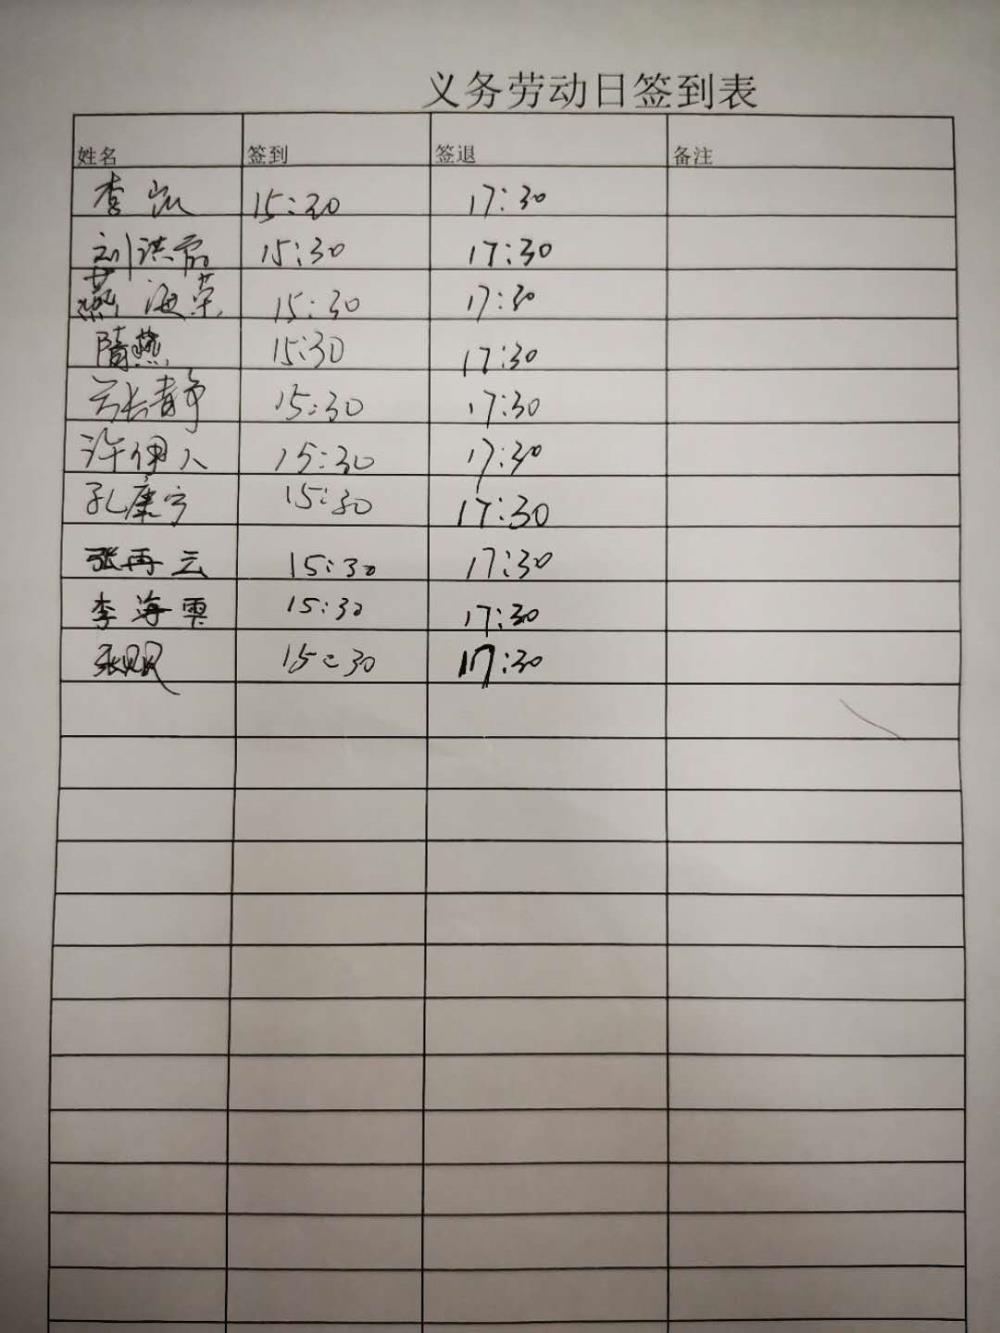 义务劳动日签到表
姓名 签到 签退 备注
李凯 15:30 17:30
刘洪霞 15:30 17:30
燕海荣 15:30 17:30
隋燕 15:30 17:30
长静 15:30 17:30
许伊人 15:30 17:30
孔康宁 15:30 17:30
张再云 15:30 17:30
李海霞 15:30 17:30
张 15:30 17:30